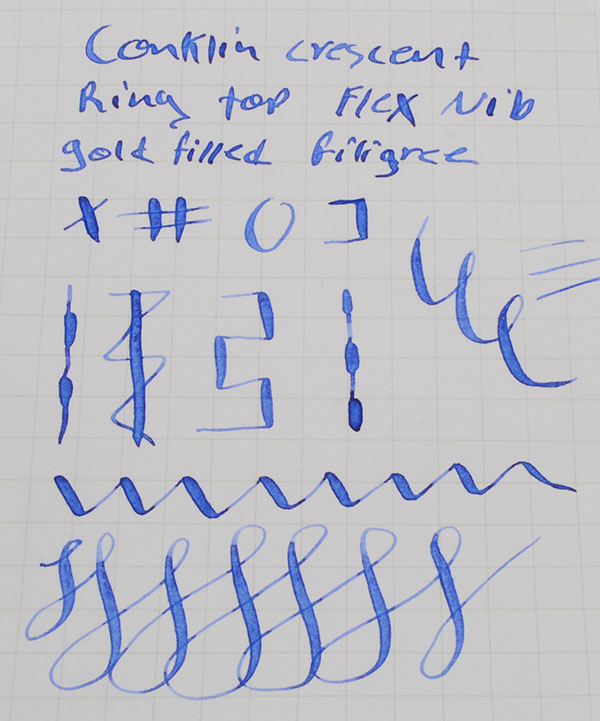 Conklin crescent
Ring top Flex Nib
gold filled filigree
X # O ]